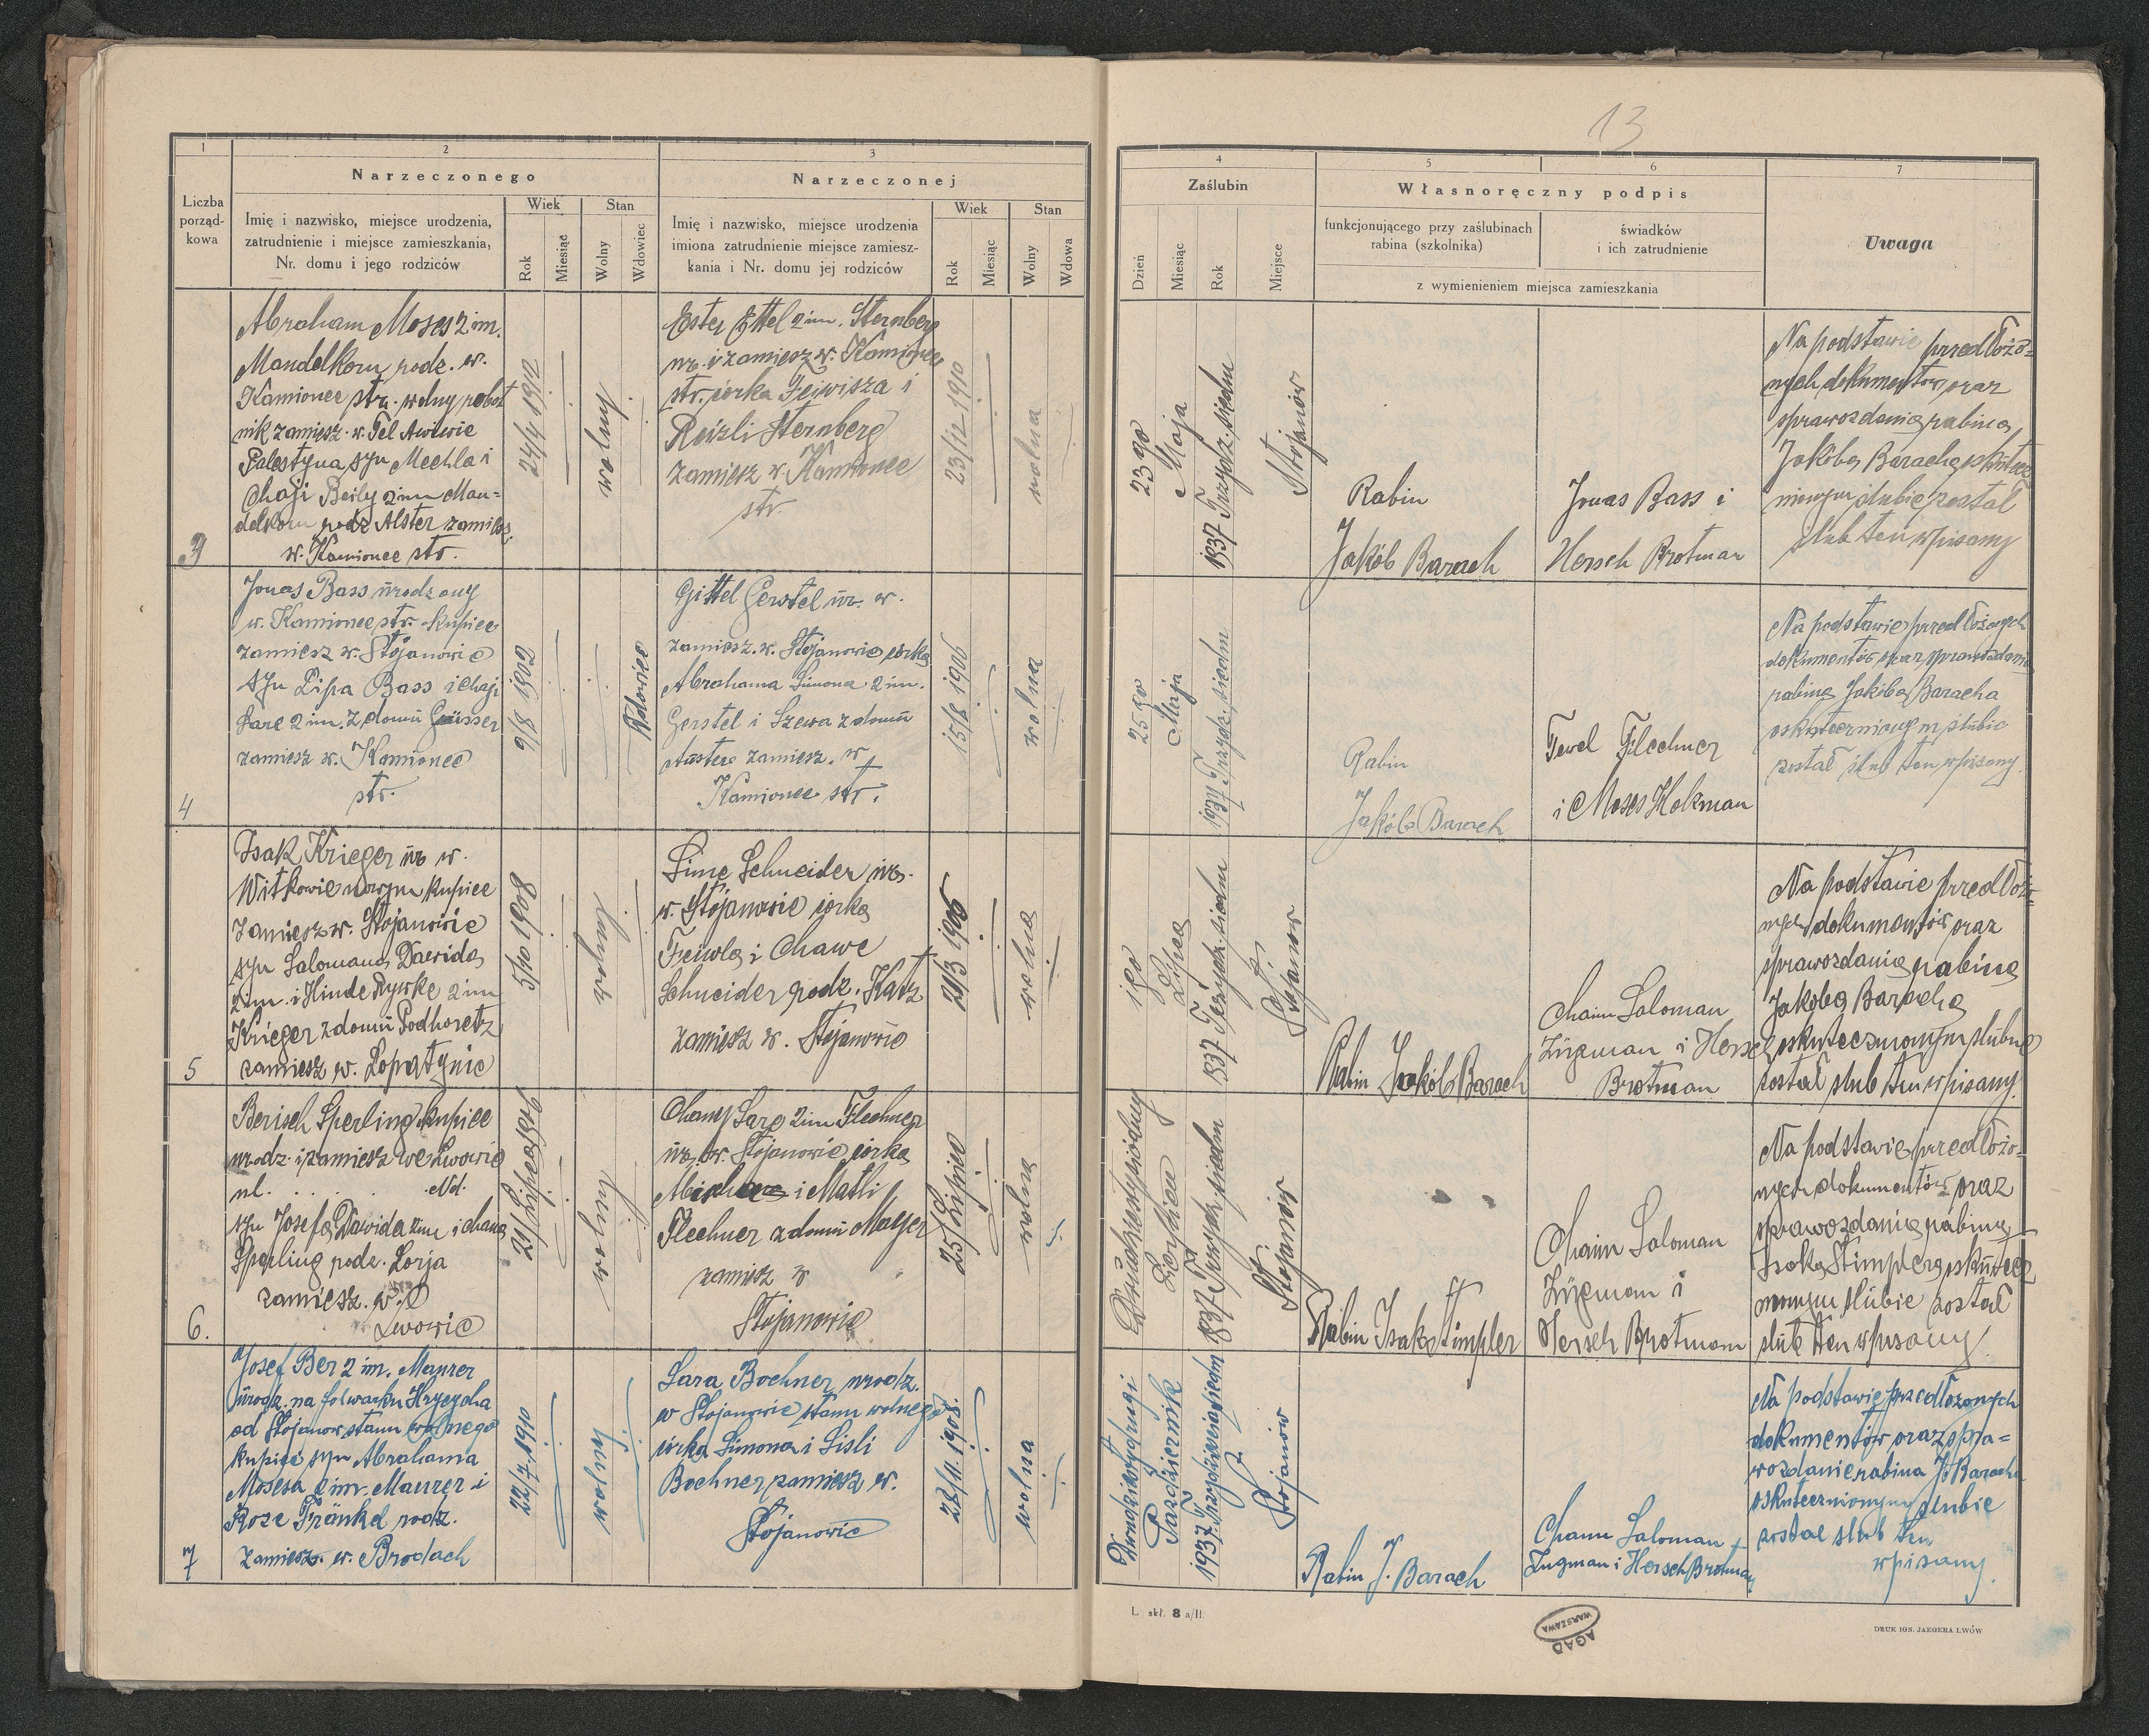 13
1
2
3
Narzeczonego
Narzeczonej
Liczba
porząd-
kowa
Imię i nazwisko, miejsce urodzenia,
zatrudnienie i miejsce zamieszkania,
Nr. domu i jego rodziców
Wiek
Rok
Miesiąc
Stan
Wolny
Wdowiec
Imię i nazwisko, miejsce urodzenia
imiona zatrudnienie miejsce zamiesz-
kania i Nr. domu jej rodziców
Wiek
Rok
Miesiąc
Stan
Wolny
Wdowa
4
5
6
7
Zaślubin
Własnoręczny podpis
Dzień
Miesiąc
Rok
Miejsce
funkcjonującego przy zaślubinach
rabina (szkolnika)
świadków
i ich zatrudnienie
z wymienieniem miejsca zamieszkania
Uwaga
3
Abraham Moses 2 im.
Mandelkorn rodz. w.
Kamionce str. wolny robot
nik zamiesz. w. Tel Awiwie
Palestyna syn Mechla i
Chaji Beily 2 im Man=
delkorn rodz Alster zamiesz.
w. Kamionce str.
24/4 1912
wolny
Ester Ettel 2 im. Sternberg
ur. i zamiesz w. Kamionce
str. córka Feiwisza i
Reizli Sternberg
zamiesz w. Kamionce
str.
23/12 1910
wolna
23 go
Maja
1937 Trzydz. siedm
Stojanów
Rabin
Jakób Barach
Jonas Bass i
Hersch Brotman
Na podstawie przedłożo=
nych dokumentów oraz
sprawozdania rabina
Jakóba Baracha o skutecz
nionym ślubie został
ślub ten wpisany
4
Jonas Bass urodzony
w. Kamionce str. kupiec
zamiesz w. Stojanowie
syn Lipa Bass i Chaji
Sare 2 im. z domu
zamiesz w. Kamionce
str.
9/8 1902
Wdowiec
Gittel Gerstel ur. w.
zamiesz. w. Stojanowie córka
Abrahama Simona 2 im.
Gerstel i Szewa z domu
zamiesz. w
Kamionce str.
15/8 1906
wolna
25 go
Maja
1937 Trzydz. siedm
Rabin
Jakób Barach
Fewel Flechner
i Moses Hokman
Na podstawie przedłożonych
dokumentów oraz sprawozdania
rabina Jakóba Baracha
o skutecznionym ślubie
został ślub ten wpisany.
5
Isak Krieger ur w.
Witkowie nowym kupiec
zamiesz w. Stojanowie
syn Salomana Dawida
2 im. i Hinde Rywke 2 im
Krieger z domu Podhoretz
zamiesz w. Łopatynie
5/10 1908
wolny
Sime Schneider ur.
w. Stojanowie córka
Feiwla i Chawe
Schneider rodz. Katz
zamiesz w. Stojanowie
1906
wolna
1 go
Lipca
1937 Trzydz. siedm
Stojanów
Rabin Jakób Barach
Chaim Saloman
Zugman i Hersch
Brotman
Na podstawie przedłożo=
nych dokumentów oraz
sprawozdania rabina
Jakóba Baracha
o skutecznionym ślubie
został ślub ten wpisany.
6.
Berisch Sperling kupiec
urodz. i zamiesz we Lwowie
ul. . . . Nd.
syn Josefa Dawida 2 im i Chana
Sperling rodz. Lorja
zamiesz. w. e
Lwowie
21/Lipca 1906
wolny
Chany Sare 2 im Flechner
ur. w. Stojanowie córka
i Matli
Flechner z domu Mayer
zamiesz w
Stojanowie
25/Lipiec
wolna
Dwudziestysiódmy
Sierpień
1937 Trzydz. siedm
Stojanów
Rabin Isak Stimpler
Chaim Saloman
Zugman i
Hersch Brotman
Na podstawie przedłożo=
nych dokumentów oraz
sprawozdania rabina
Isaka Stimplera o skutecz
nionym ślubie został
ślub ten wpisany
7
Josef Ber 2 im. Maurer
urodz. na folwarku
ad Stojanow stanu wolnego
kupiec syn Abrahama
Mosesa 2 im. Maurer i
Roze Fränkel rodz.
zamiesz. w. Brodach
22/7. 1910
wolny
Sara Bochner urodz.
w Stojanowie stanu wolnego
córka Simona i Sisli
Bochner zamiesz w.
Stojanowie
28/11. 1908.
wolna
Październik
1937. Trzydzieściasiedm
Stojanów
Rabin J. Barach
Chaim Saloman
Zugman i Hersch Brotman
Na podstawie przedłożonych
dokumentów oraz spra=
wozdanie rabina J. Baracha
o skutecznionym ślubie
został ślub ten
wpisany.
L. skł. 8 a/II.
AGAD
WARSZAWA
DRUK IGN. JAEGERA LWÓW